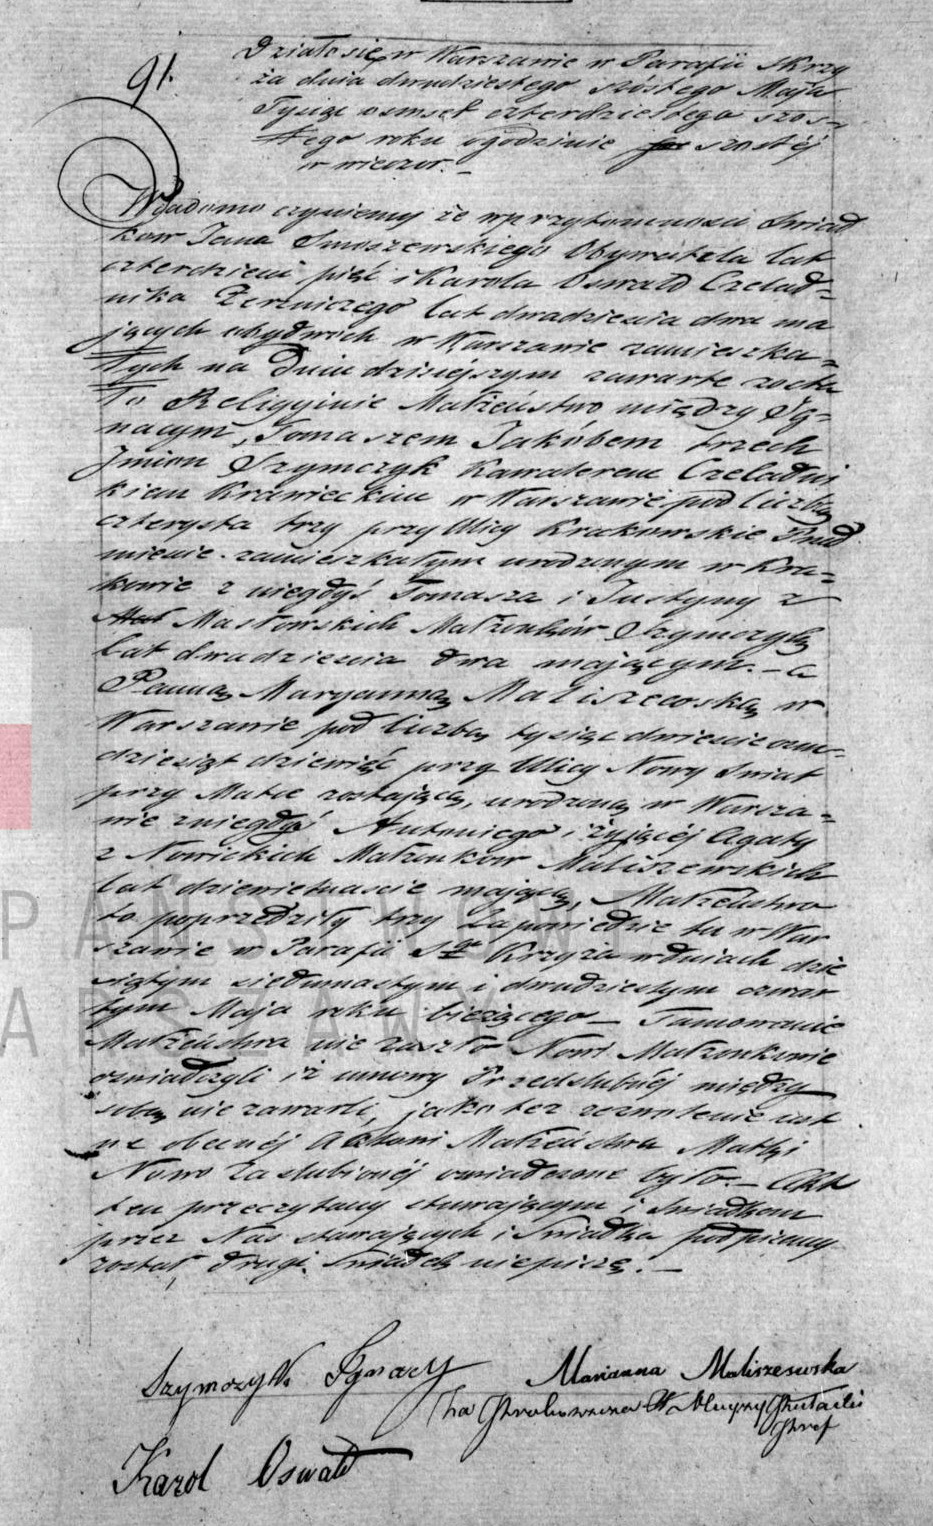 91.
Działo się w Warszawie w Parafii S Krzy
ża dnia dwudziestego szóstego Maja
Tysiąc osmset czterdziestego szós-
tego roku o godzinie szóstéj
w wieczor. -
Wiadomo czyniemy że w przytomności Świad
kow Jana Smoszewskiego Obywatela lat
czterdzieści pięć i Karola Oswald Czelad-
nika lat dwadzieścia dwa ma
jących obydwóch w Warszawie zamieszka-
łych na Dniu dzisiéjszym zawarte zosta
ło Religijnie Małżeństwo między Ig-
nacym, Tomaszem Jakóbem trzech
Imion Szymczyk Kawalerem Czeladni
kiem Krawieckim w Warszawie pod liczbą
czterysta trzy przy Ulicy Krakowskie Przed
mieście zamieszkałym urodzonym w Kra-
kowie z niegdyś Tomasza i Justyny z
Masłowskich Małżonków Szymczyk
lat dwadzieścia dwa mającym. - a
Panną Maryanną Maliszewską w
Warszawie pod liczbą tysiąc dwieście ośm-
dziesiąt dziewięć przy Ulicy Nowy Świat
przy Matce zostającą, urodzoną w Warsza-
wie z niegdyś Antoniego i żyjącéj Agaty
z Nowickich Małżonków Maliszewskich
lat dziewietnaście mającą, Małżeństwo
to poprzedziły trzy Zapowiedzie tu w War
szawie w Parafii Sgo Krzyża w dniach dzie
siątym siedmnastym i dwudziestym czwar
tym Maja roku bieżącego - Tamowanie
Małżeństwa nie zaszło Nowi Małżonkowie
oświadczyli iż umowy Przedślubnéj między
sobą nie zawarli, jako też zezwolenie ust
ne obecnéj Aktowi Małżeństwa Matki
Nowo Zaślubionéj oświadczone było. - Akt
ten przeczytany stawającym i Świadkom
przez Nas stawających i Świadka podpisany
został, drugi Świadek niepiszę. -
Szymczyk Ignacy
Marianna Maliszewska
Karol Oswald